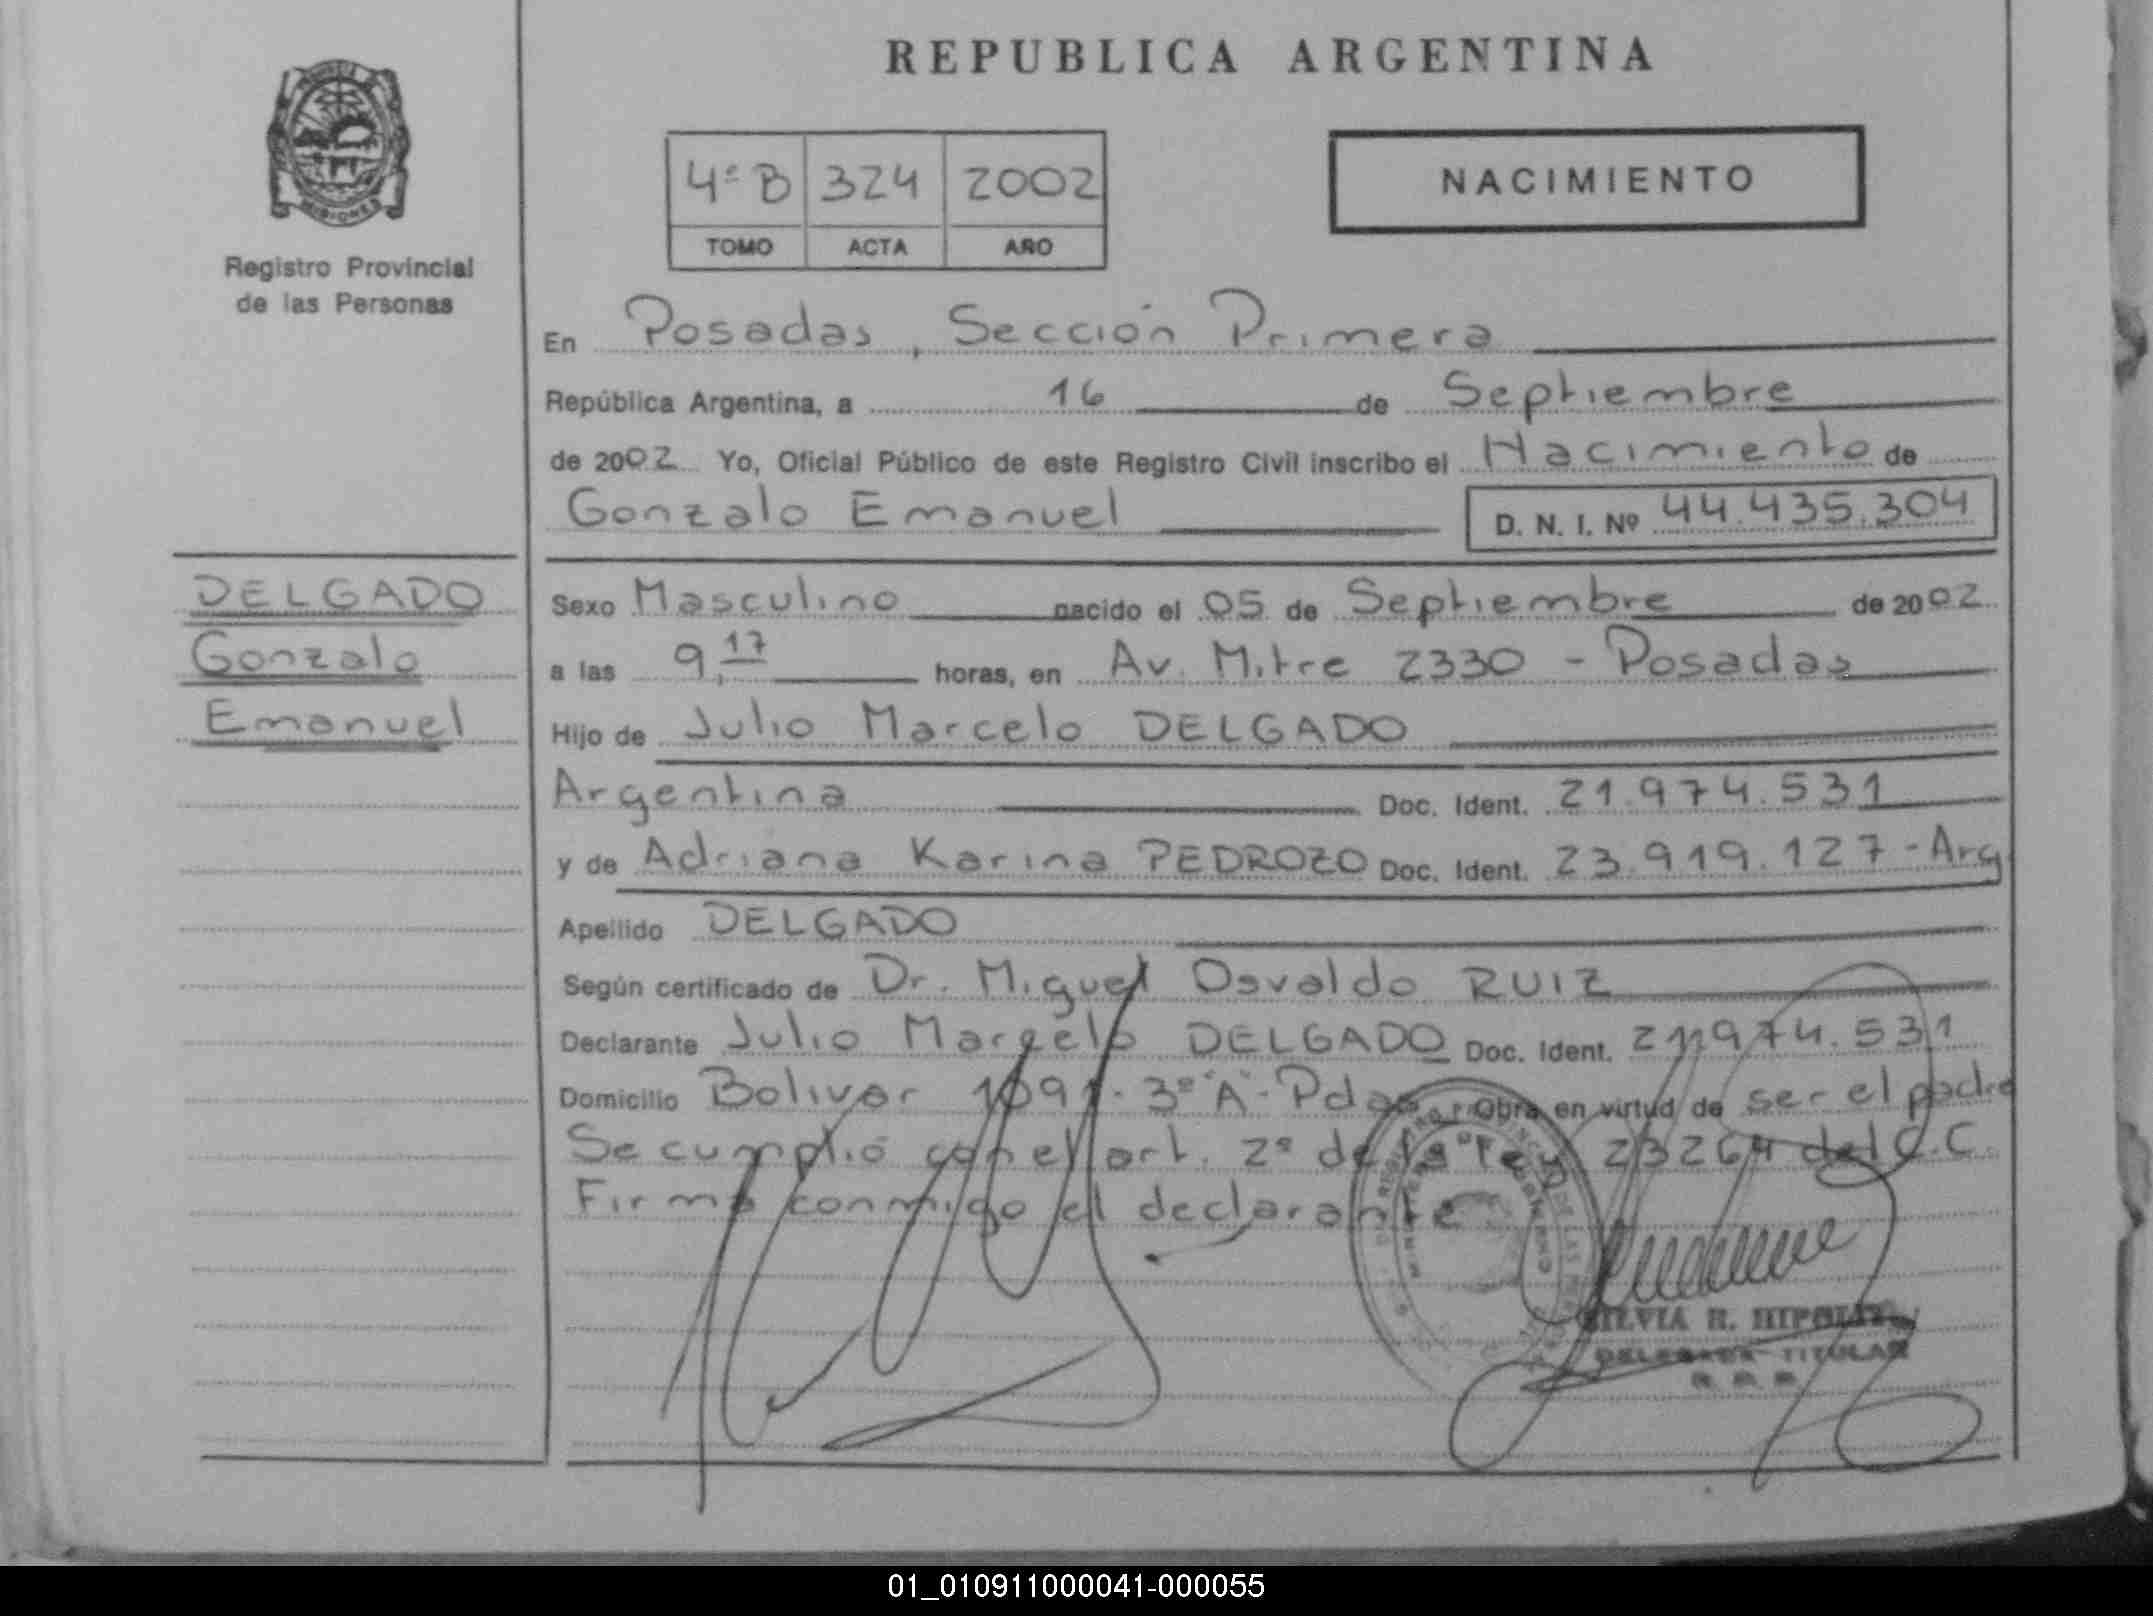 REPUBLICA ARGENTINA
MISIONES
Registro Provincial
de las Personas
4º B 324 2002
TOMO ACTA AÑO
NACIMIENTO
En Posadas, Sección Primera
República Argentina, a 16 de Septiembre
de 2002 Yo, Oficial Público de este Registro Civil inscribo el Nacimiento de
Gonzalo Emanuel D. N. I. Nº 44.435.304
DELGADO
Gonzalo
Emanuel
Sexo Masculino nacido el 05 de Septiembre de 2002
a las 9,17 horas, en Av. Mitre 2330 - Posadas
Hijo de Julio Marcelo DELGADO
Argentina Doc. Ident. 21.974.531
y de Adriana Karina PEDROZO Doc. Ident. 23.919.127 - Arg
Apellido DELGADO
Según certificado de Dr. Miguel Osvaldo RUIZ
Declarante Julio Marcelo DELGADO Doc. Ident. 21.974.531
Domicilio Bolivar 1091 - 3º "A" - Pdas Obra en virtud de ser el padre
Se cumplió con el art. 2º de la Ley 23264 del C.C.
Firma conmigo el declarante
SILVIA R.
TITULAR
01_010911000041-000055